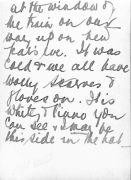 at the window of
the train on our
way up on new
years Eve. It was
cold & we all have
wolly scarves &
gloves on. It is
whity & Piano you
can see & I may be
this side in the hat